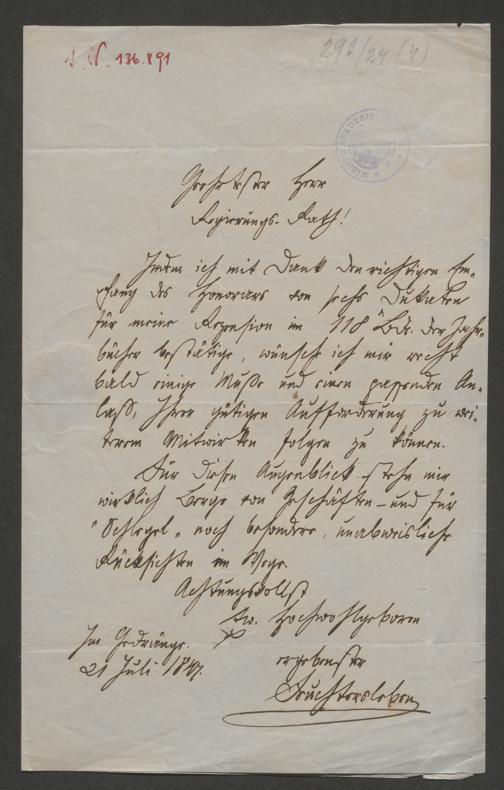 I. N. 136.891
291/24 (4)
Geehrtester Herr
Regierungs-Rath!
Indem ich mit Dank den richtigen Em-
pfang des Honorars von sechs Dukaten
für meine Rezension im 118 Bde. der Jahr-
bücher bestätige, wünsche ich mir recht
bald einige Muße und einen passenden An-
laß, Ihrer gütigen Aufforderung zu wei-
terem Mitwirken folgen zu können.
Für diesen Augenblick stehn mir
wirklich Berge von Geschäften – und für
"Schlegel" noch besondere, unabweisliche
Rücksichten im Wege.
Achtungsvollst
Ew. Hochwohlgeboren
Im Gedränge.
21 Juli 1847.
ergebenster
Feuchtersleben